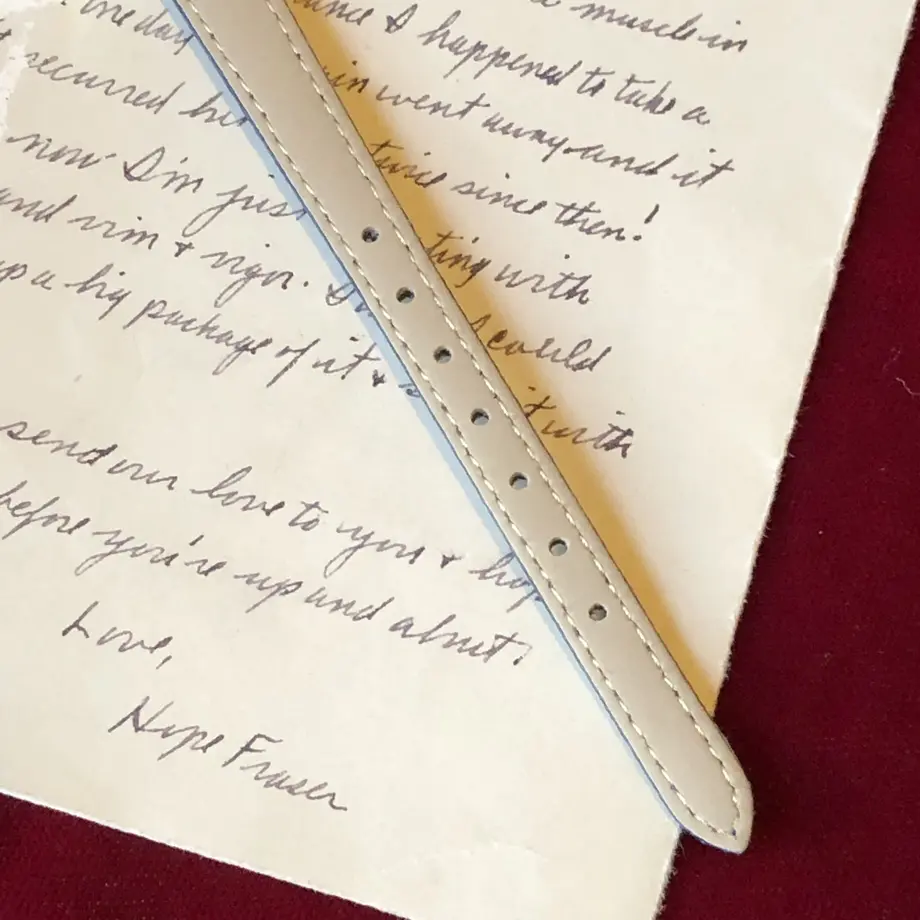 a muscle in
One day I happened to take a
secured went away and it
now I'm just twice since then!
and vim & vigor. ting with
up a big package of it & could
it with
send our love to you & hop
before you're up and about.
Love,
Hope Fraser